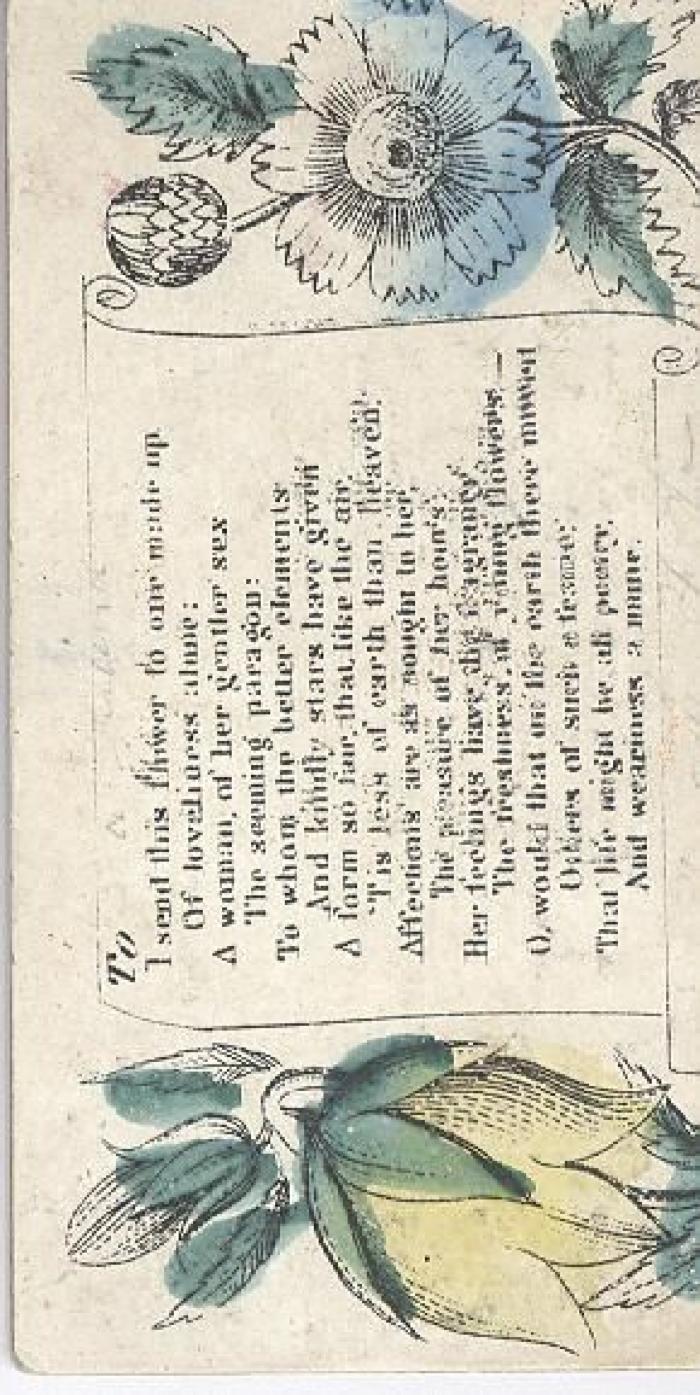 To
I send this flower to one made up
Of loveliness alone;
A woman, of her gentler sex
The seeming paragon:
To whom the better elements
And kindly stars have given
A form so fair, that, like the air,
'Tis less of earth than heaven.
Affections are as thought to her,
The pleasure of her hours;
Her feelings have the fragrancy,
The freshness of young flowers.—
O, would that on the earth there moved
Others of such a frame;
That life might be all poetry,
And weariness a name.